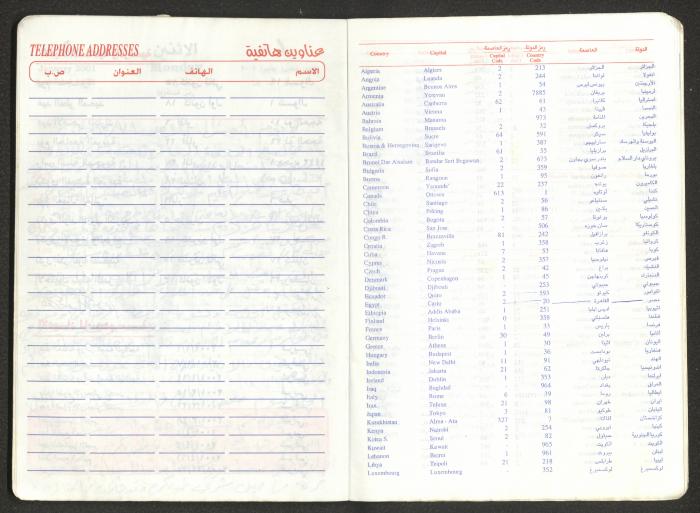 TELEPHONE ADDRESSES عناوين هاتفية
الاسم الهاتف العنوان ص.ب
Country Capital رمز العاصمة Capital Code رمز الدولة Country Code العاصمة الدولة
Algeria Algiers 2 213 الجزائر الجزائر
Angola Luanda 2 244 لواندا انغولا
Argentine Buenos Aires 1 54 بيونس ايرس الأرجنتين
Armenia Yerevan 2 7885 يريفان ارمينيا
Australia Canberra 62 61 كانبرا استراليا
Austria Vienna 1 43 فيينا النمسا
Bahrain Manama - 973 المنامة البحرين
Belgium Brussels 2 32 بروكسل بلجيكا
Bolivia Sucre 64 591 سيكر بوليفيا
Bosnia & Herzegovina Sarajevo 1 387 سراييفو البوسنة والهرسك
Brazil Brasilia 61 55 برازيليا البرازيل
Brunei Dar Alsalam Bandar Seri Begawan 2 673 بندر سري بغاوان بروناي دار السلام
Bulgaria Sofia 2 359 صوفيا بلغاريا
Burma Rangoon 1 95 رانغون بورما
Cameroon Yaounde' 22 237 يوندة الكاميرون
Canada Ottawa 613 1 اوتاوه كندا
Chile Santiago 2 56 سنتياغو تشيلي
China Peking 1 86 بكين الصين
Colombia Bogota 2 57 بوغوتا كولومبيا
Costa Rica San Jose - 506 سان خوزه كوستاريكا
Congo R. Brazzaville 81 242 برازافيل الكونغو
Croatia Zagreb 1 358 زغرب كرواتيا
Cuba Havana 7 53 هافانا كوبا
Cyprus Nicosia 2 357 نيقوسيا قبرص
Czech Prague 2 42 براغ التشيك
Denmark Copenhagen 1 45 كوبنهاجن الدنمارك
Djibouti Djibouti - 253 جيبوتي جيبوتي
Ecuador Quito 2 593 كيوتو اكوادور
Egypt Cairo 2 20 القاهرة مصر
Ethiopia Addis Ababa 1 251 اديس ابابا اثيوبيا
Finland Helsinki 0 358 هلسنكي فنلندا
France Paris 1 33 باريس فرنسا
Germany Berlin 30 49 برلين المانيا
Greece Athens 1 30 اثينا اليونان
Hungary Budapest 1 36 بودابست هنغاريا
India New Delhi 11 91 نيودلهي الهند
Indonesia Jakarta 21 62 جاكرتا اندونيسيا
Ireland Dublin 1 353 دبلن ايرلندا
Iraq Baghdad 1 964 بغداد العراق
Italy Rome 6 39 روما ايطاليا
Iran Tehran 21 98 طهران ايران
Japan Tokyo 3 81 طوكيو اليابان
Kazakhistan Alma - Ata 327 7 كازاخستان
Kenya Nairobi 2 254 نيروبي كينيا
Korea S. Seoul 2 82 سيئول كوريا الجنوبية
Kuwait Kuwait - 965 الكويت الكويت
Lebanon Beirut 1 961 بيروت لبنان
Libya Tripoli 21 218 طرابلس ليبيا
Luxembourg Luxembourg - 352 لوكسمبرغ لوكسمبرغ